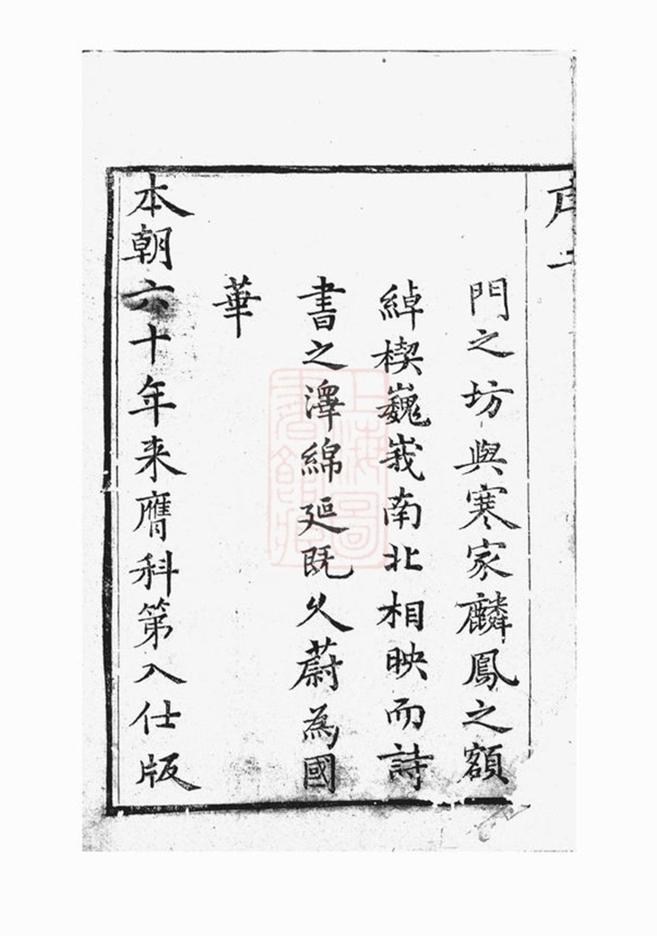 門之坊與寒家麟鳳之額
綽楔巍峩南北相映而詩
書之澤綿延既久蔚為國
華
本朝六十年来膺科第入仕版
上海圖書館藏